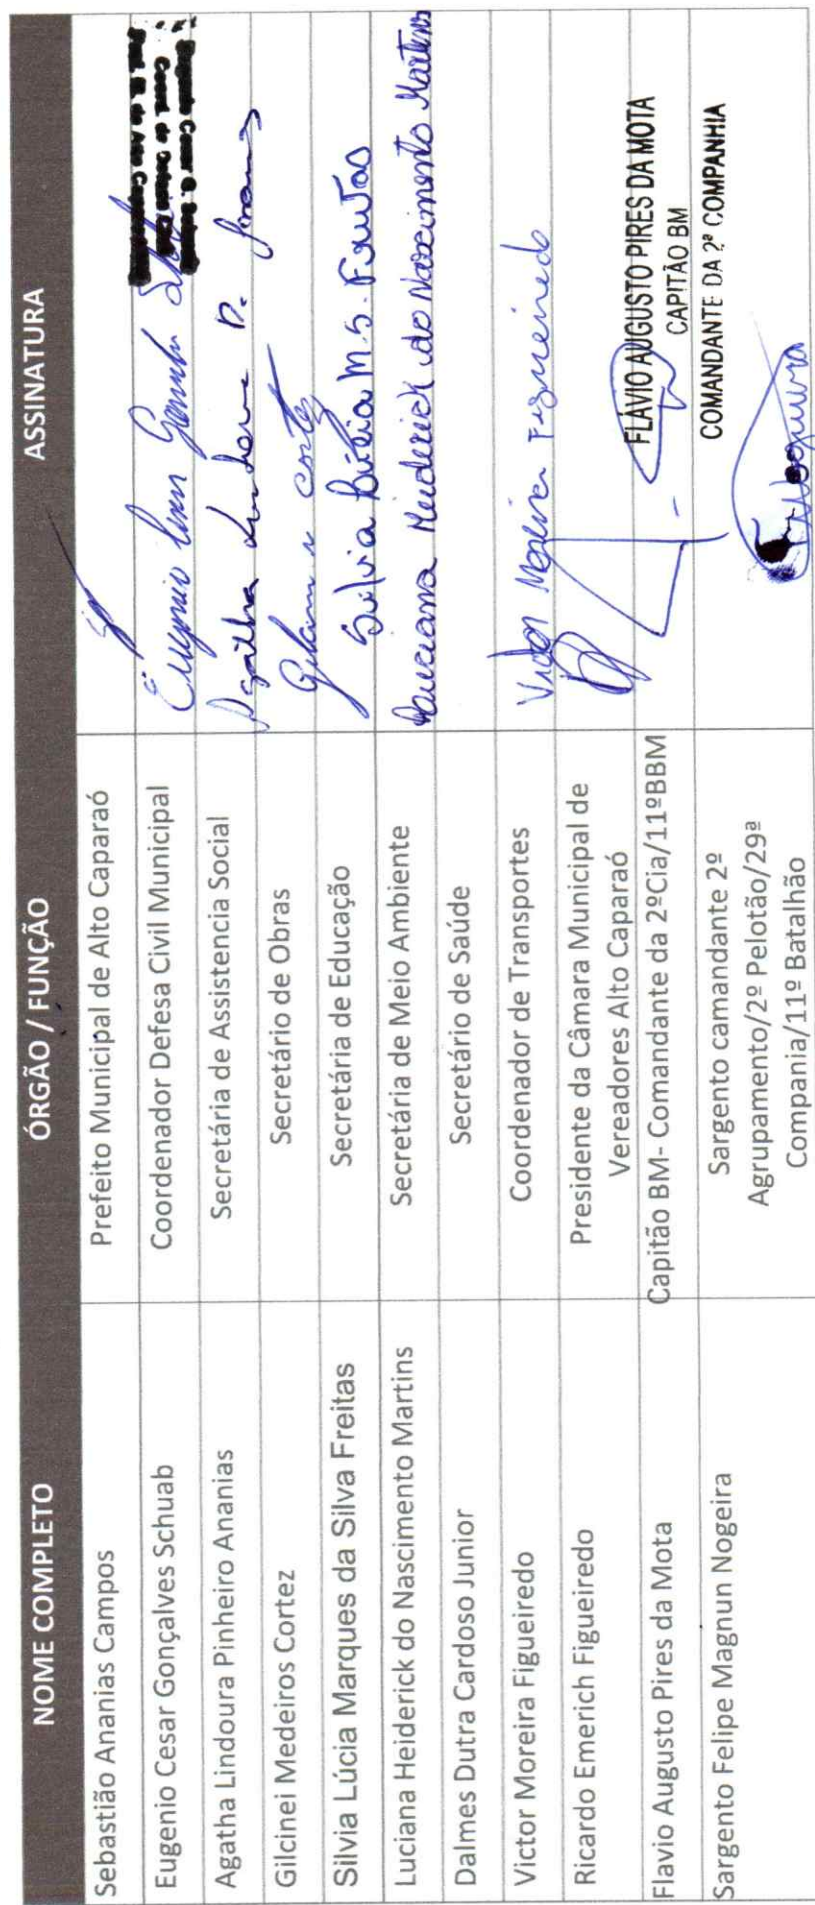 NOME COMPLETO ÓRGÃO / FUNÇÃO ASSINATURA
Sebastião Ananias Campos Prefeito Municipal de Alto Caparaó
Eugenio Cesar Gonçalves Schuab Coordenador Defesa Civil Municipal Eugenio
Coord. de Defesa Civil
Agatha Lindoura Pinheiro Ananias Secretária de Assistencia Social Agatha Lindoura P.
Gilcinei Medeiros Cortez Secretário de Obras Cortez
Silvia Lúcia Marques da Silva Freitas Secretária de Educação Silvia Lúcia M. S. Freitas
Luciana Heiderick do Nascimento Martins Secretária de Meio Ambiente Luciana Heiderick do Nascimento Martins
Dalmes Dutra Cardoso Junior Secretário de Saúde
Victor Moreira Figueiredo Coordenador de Transportes Victor Moreira Figueiredo
Ricardo Emerich Figueiredo Presidente da Câmara Municipal de
Vereadores Alto Caparaó
Flavio Augusto Pires da Mota Capitão BM- Comandante da 2ºCia/11ºBBM
FLÁVIO AUGUSTO PIRES DA MOTA
CAPITÃO BM
COMANDANTE DA 2ª COMPANHIA
Sargento Felipe Magnun Nogeira Sargento camandante 2º
Agrupamento/2º Pelotão/29ª
Compania/11º Batalhão
Nogueira